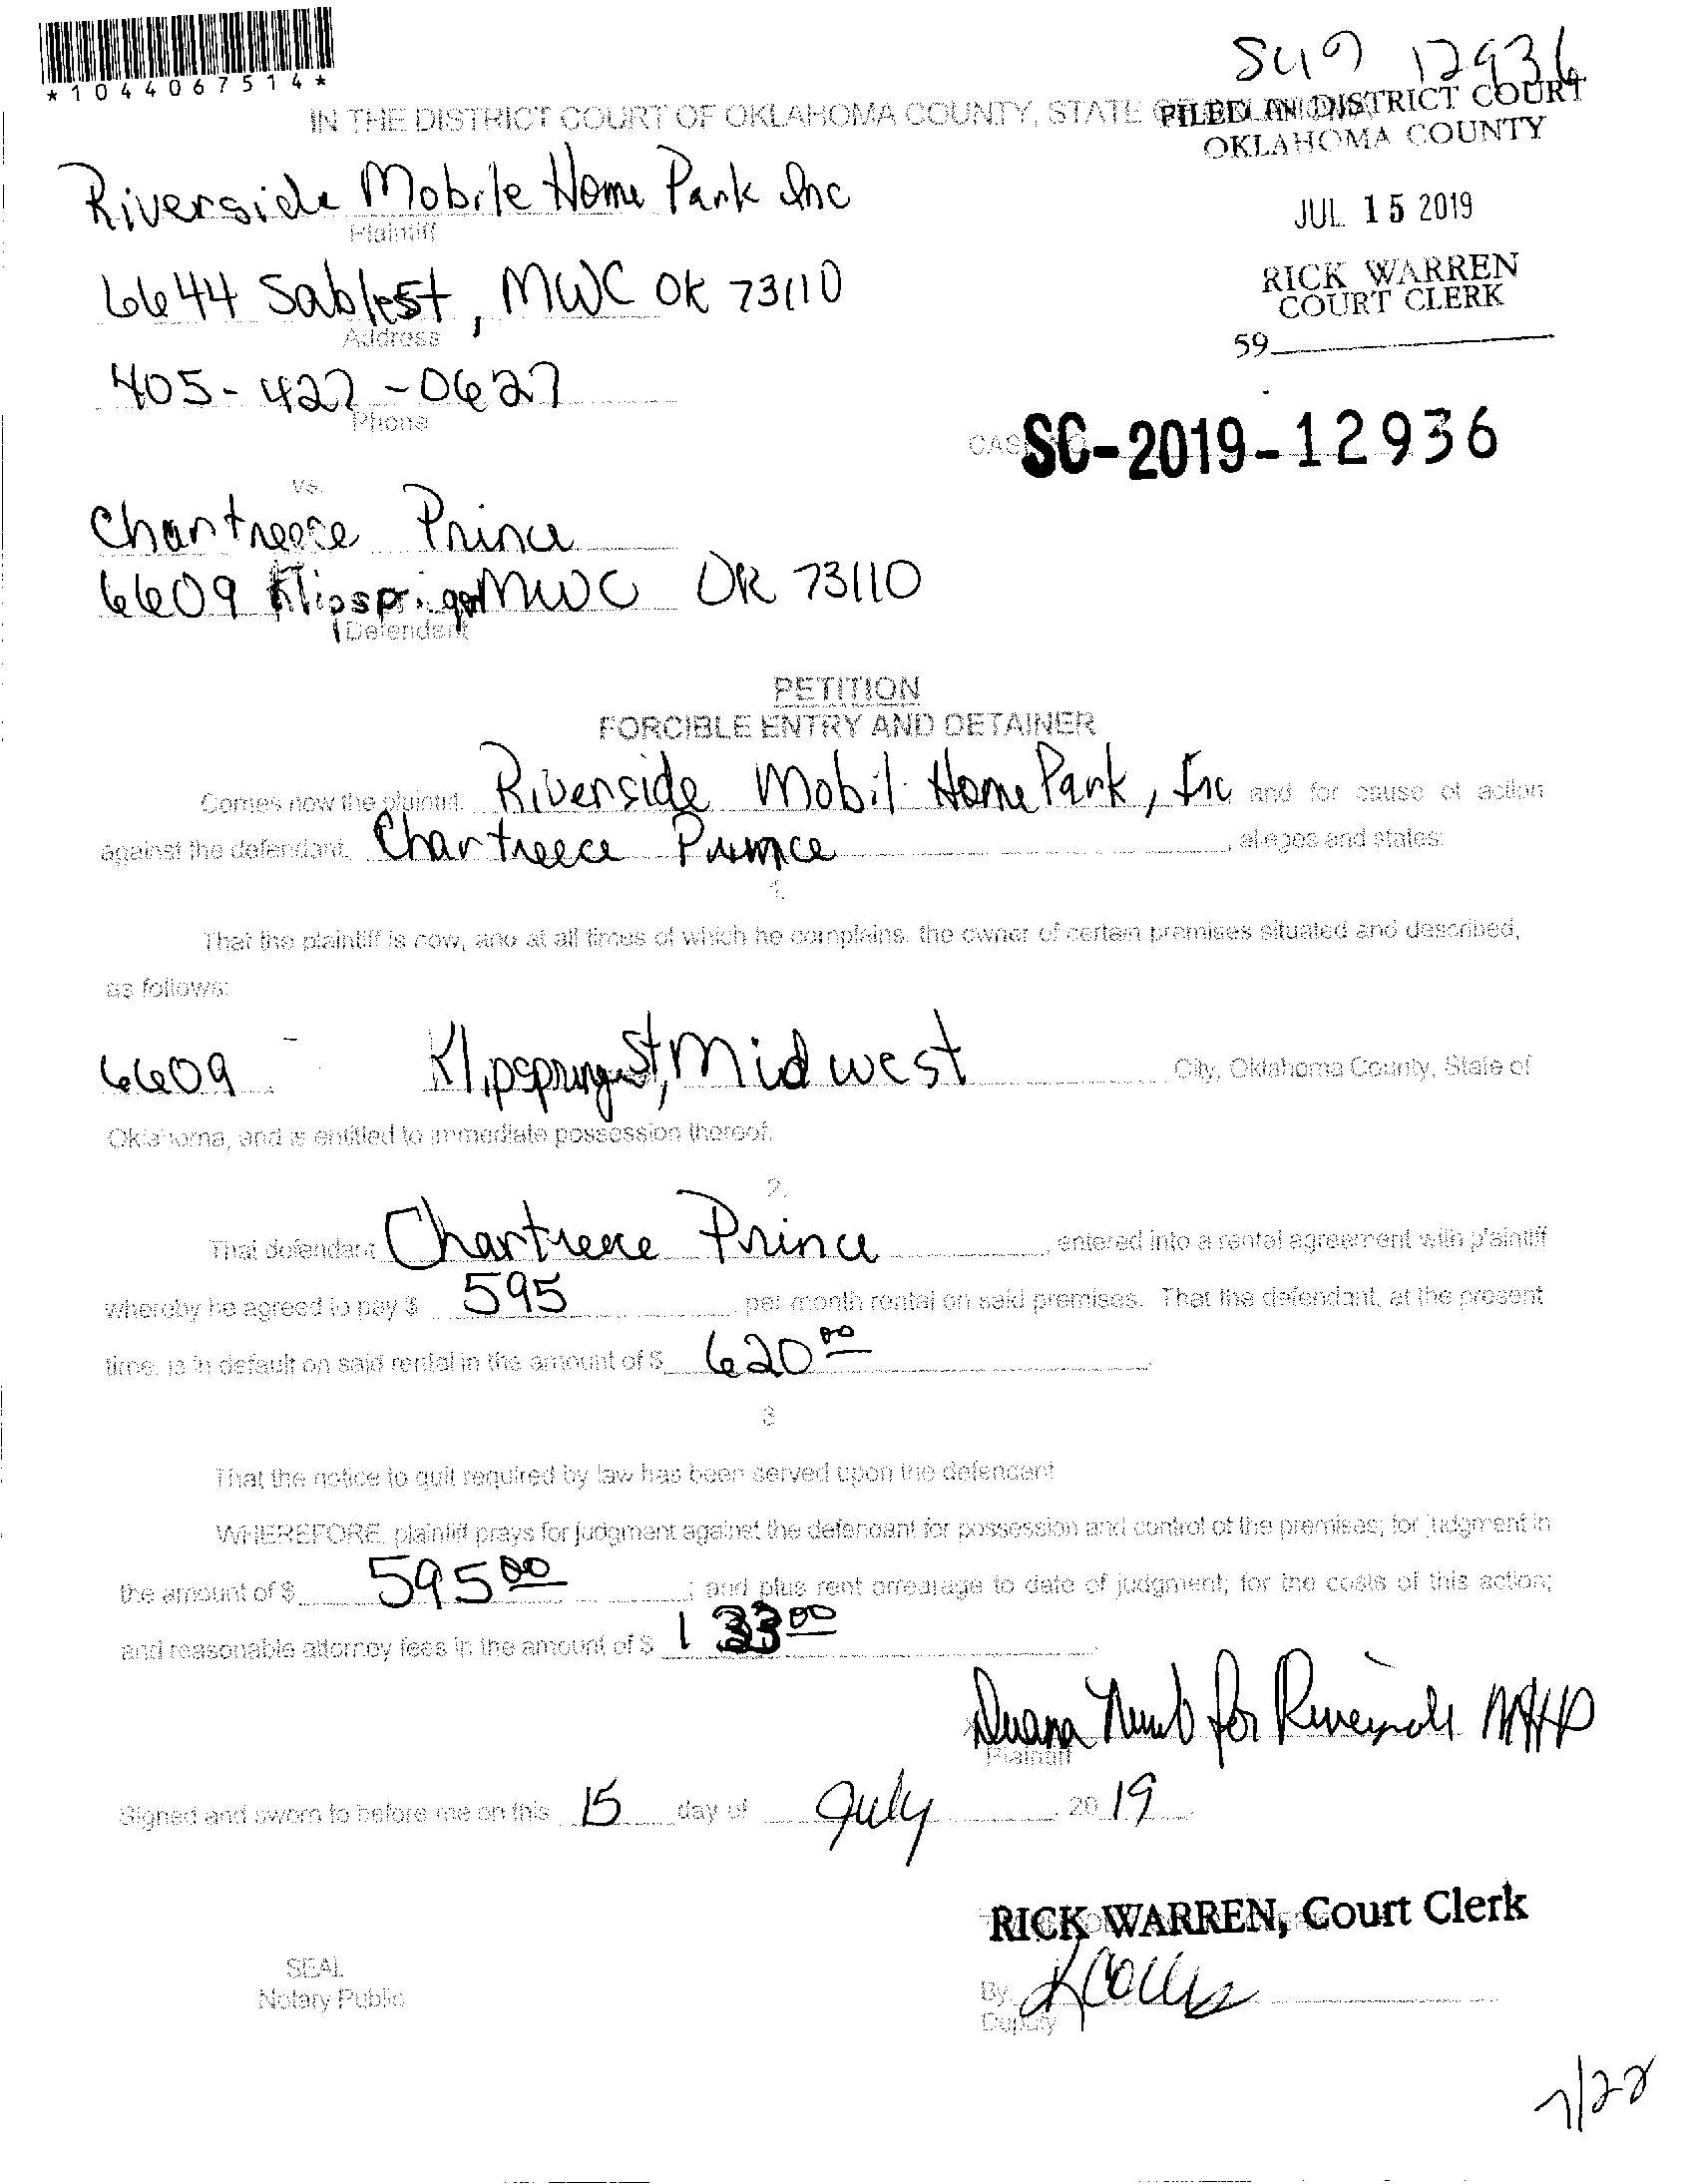 *1044067514*
SC19 12936
IN THE DISTRICT COURT OF OKLAHOMA COUNTY, STATE
FILED IN DISTRICT COURT
OKLAHOMA COUNTY
JUL 15 2019
RICK WARREN
COURT CLERK
59
Riverside Mobile Home Park Inc
Plaintiff
6644 Sable St, MWC OK 73110
Address
405-427-0627
Phone
CASE SC-2019-12936
vs.
Chartreece Prince
6609 Klipspringer MWC OK 73110
Defendant
PETITION
FORCIBLE ENTRY AND DETAINER
Comes now the plaintiff, Riverside Mobil Home Park, Inc and for cause of action
against the defendant, Chartreece Prince, alleges and states:
1.
That the plaintiff is now, and at all times of which he complains, the owner of certain premises situated and described,
as follows:
6609 Klipspringer St, Midwest City, Oklahoma County, State of
Oklahoma, and is entitled to immediate possession thereof.
2.
That defendant Chartreece Prince, entered into a rental agreement with plaintiff
whereby he agreed to pay $ 595 per month rental on said premises. That the defendant, at the present
time, is in default on said rental in the amount of $ 620 00.
3
That the notice to quit required by law has been served upon the defendant
WHEREFORE, plaintiff prays for judgment against the defendant for possession and control of the premises; for judgment in
the amount of $ 595 00; and plus rent arrearage to date of judgment; for the costs of this action;
and reasonable attorney fees in the amount of $ 133 00.
for Riverside MHP
Plaintiff
Signed and sworn to before me on this 15 day of July 20 19
RICK WARREN, Court Clerk
SEAL
Notary Public
By
Deputy
7/22